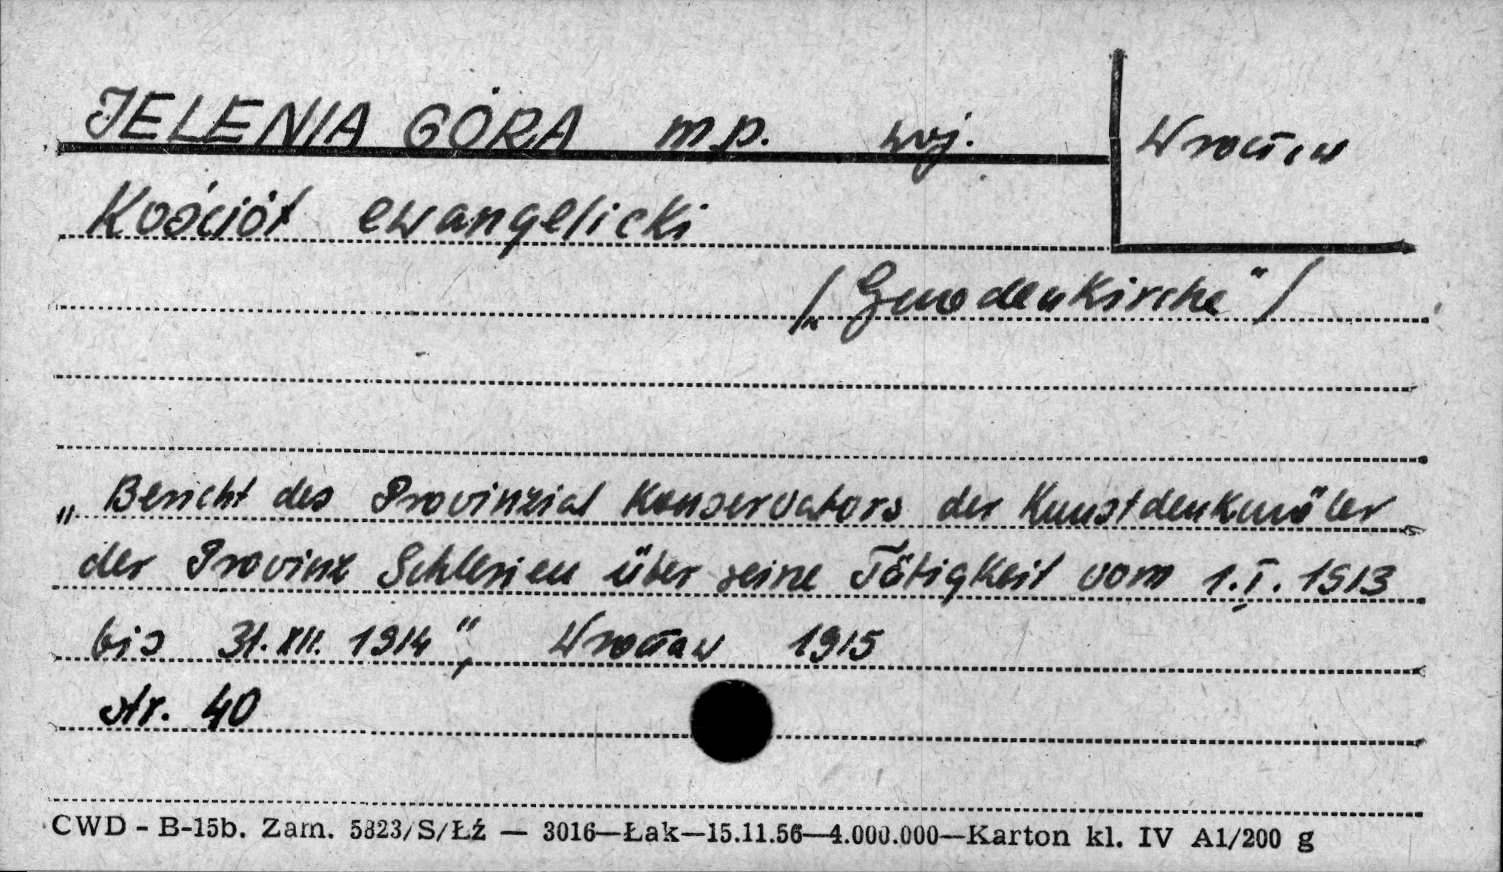 JELENIA GÓRA m.p. woj. Wrocław
Kościół ewangelicki
/„Gnadenkirche"/
„Bericht des Provinzial Konservators der Kunstdenkmäler
der Provinz Schlesien über seine Tätigkeit vom 1.I.1913
bis 31.XII.1914", Wrocław 1915
str. 40
CWD - B-15b. Zam. 5823/S/Łź — 3016—Łak—15.11.56—4.000.000—Karton kl. IV A1/200 g